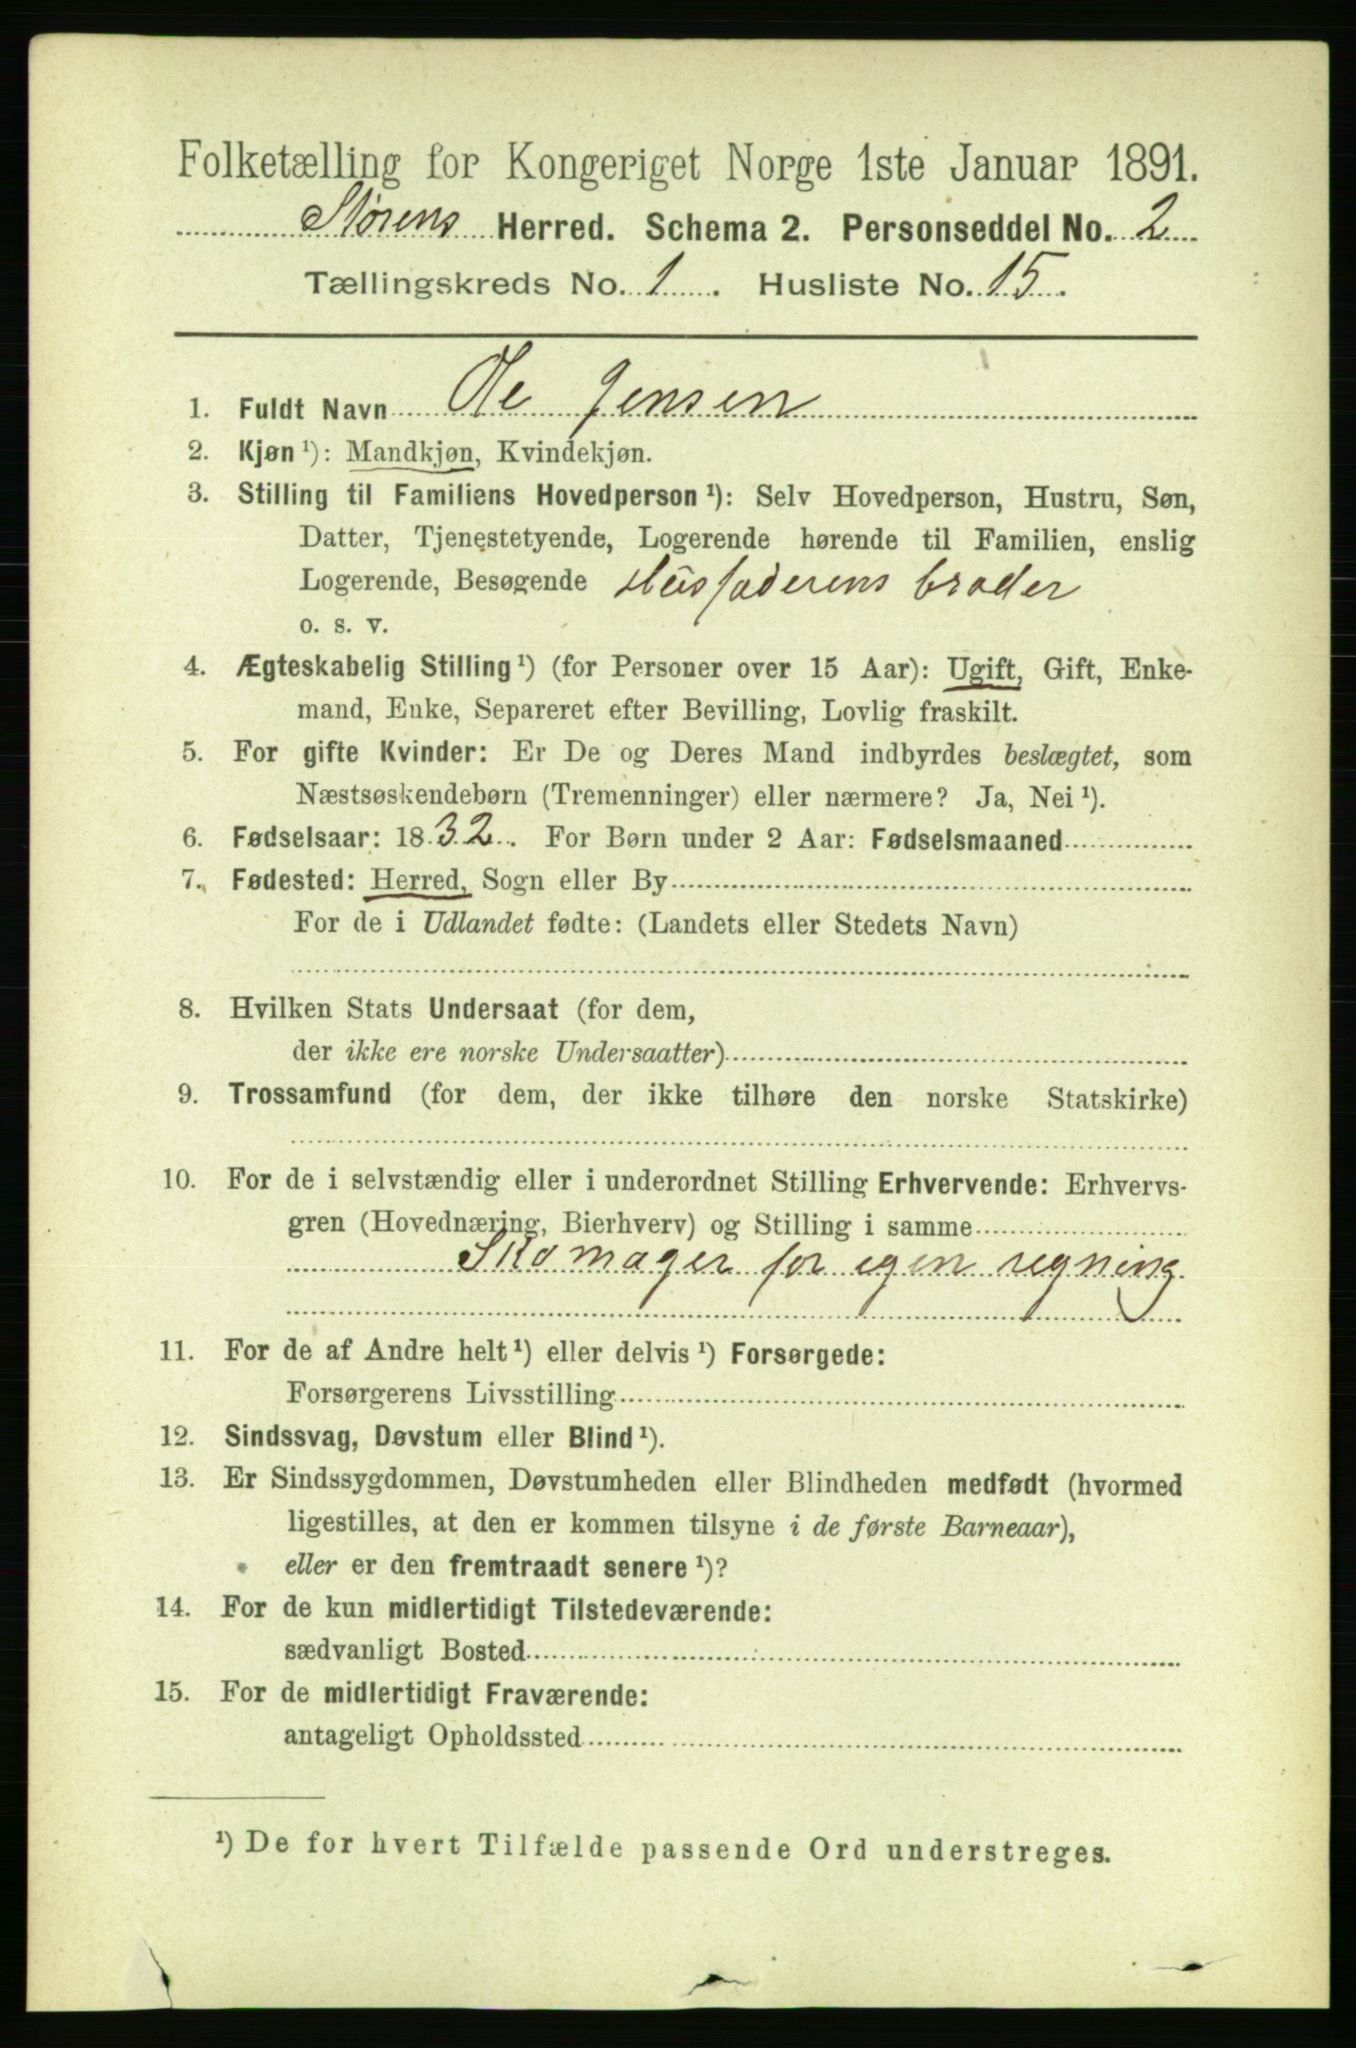 Folketælling for Kongeriget Norge 1ste Januar 1891.
Størens Herred. Schema 2. Personseddel No. 2
Tællingskreds No. 1. Husliste No. 15.
1. Fuldt Navn Ole Jensen
2. Kjøn ¹): Mandkjøn, Kvindekjøn.
3. Stilling til Familiens Hovedperson ¹): Selv Hovedperson, Hustru, Søn,
Datter, Tjenestetyende, Logerende hørende til Familien, enslig
Logerende, Besøgende Husfaderens broder
o. s. v.
4. Ægteskabelig Stilling ¹) (for Personer over 15 Aar): Ugift, Gift, Enke-
mand, Enke, Separeret efter Bevilling, Lovlig fraskilt.
5. For gifte Kvinder: Er De og Deres Mand indbyrdes beslægtet, som
Næstsøskendebørn (Tremenninger) eller nærmere? Ja, Nei ¹).
6. Fødselsaar: 1832. For Børn under 2 Aar: Fødselsmaaned
7. Fødested: Herred, Sogn eller By
For de i Udlandet fødte: (Landets eller Stedets Navn)
8. Hvilken Stats Undersaat (for dem,
der ikke ere norske Undersaatter)
9. Trossamfund (for dem, der ikke tilhøre den norske Statskirke)
10. For de i selvstændig eller i underordnet Stilling Erhvervende: Erhvervs-
gren (Hovednæring, Bierhverv) og Stilling i samme
Skomager for egen regning
11. For de af Andre helt ¹) eller delvis ¹) Forsørgede:
Forsørgerens Livsstilling
12. Sindssvag, Døvstum eller Blind ¹).
13. Er Sindssygdommen, Døvstumheden eller Blindheden medfødt (hvormed
ligestilles, at den er kommen tilsyne i de første Barneaar),
eller er den fremtraadt senere ¹)?
14. For de kun midlertidigt Tilstedeværende:
sædvanligt Bosted
15. For de midlertidigt Fraværende:
antageligt Opholdssted
¹) De for hvert Tilfælde passende Ord understreges.